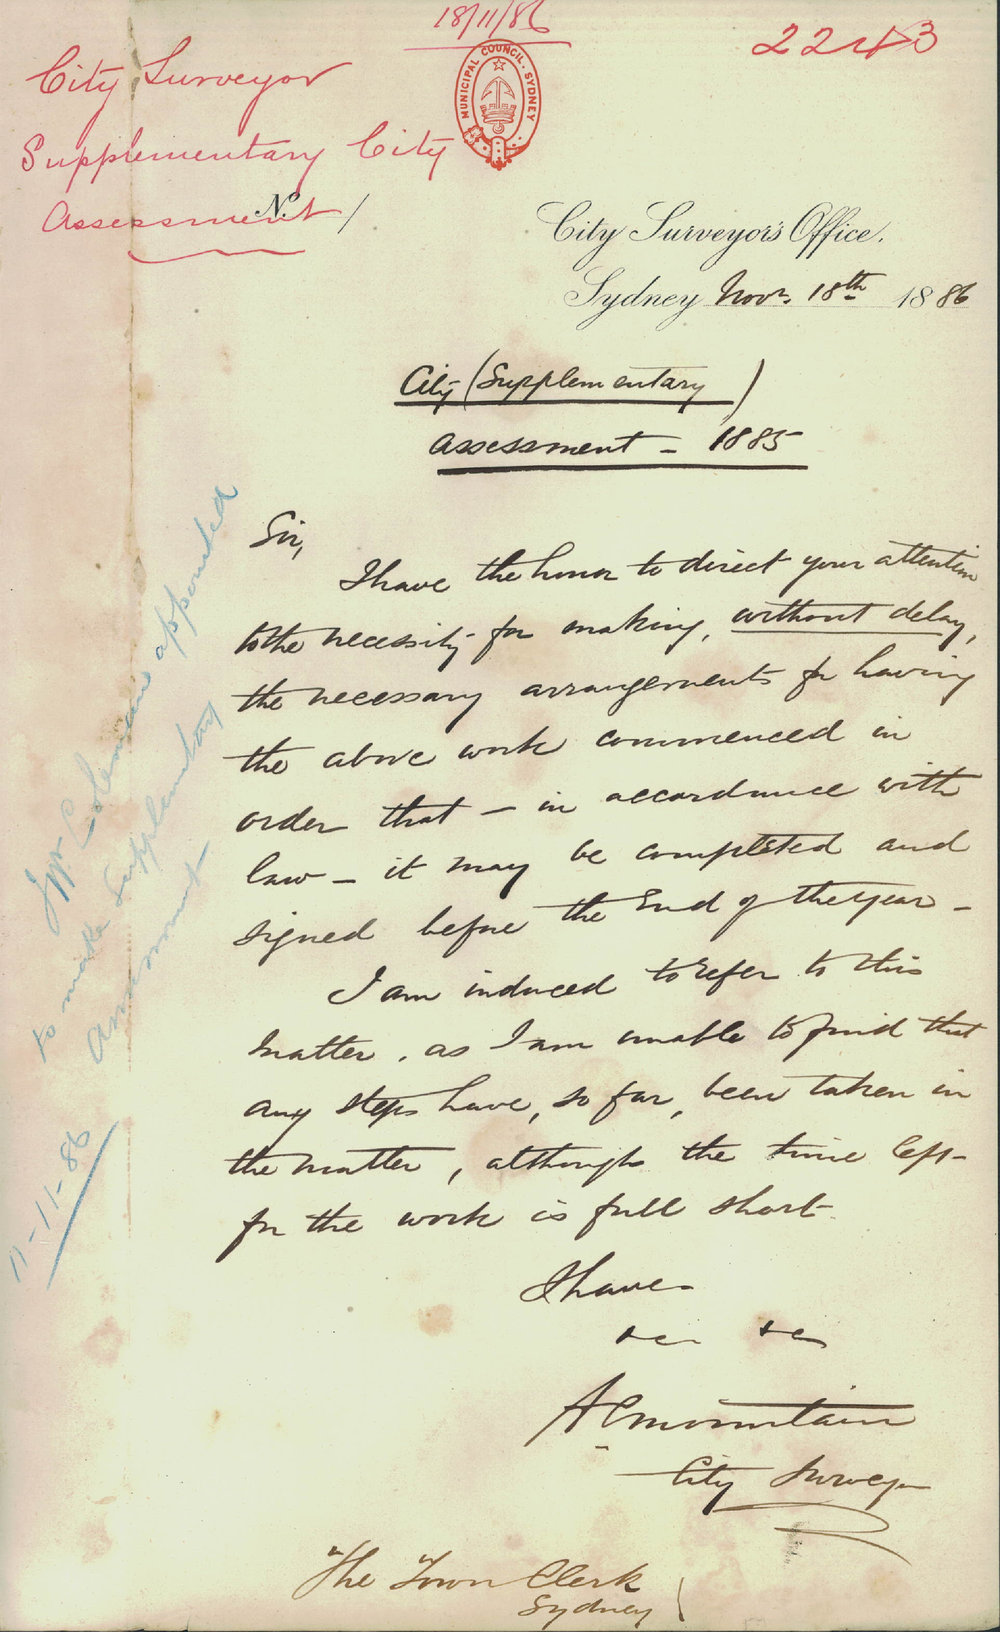 18/11/86
2243
City Surveyor
Supplementary City
Assessment
No. /
MUNICIPAL COUNCIL. SYDNEY
City Surveyor's Office.
Sydney Novr. 18th 1886
City (Supplementary)
Assessment - 1885
Sir,
I have the honor to direct your attention
to the necessity for making, without delay,
the necessary arrangements for having
the above work commenced in
order that – in accordance with
law – it may be completed and
signed before the End of the year –
I am induced to refer to this
matter, as I am unable to find that
any steps have, so far, been taken in
the matter, although the time left
for the work is full short.
I have
&c &c
A C Mountain
City Surveyor
The Town Clerk
Sydney
Coleman appointed
to make Supplementary
Assessment
11-11-86